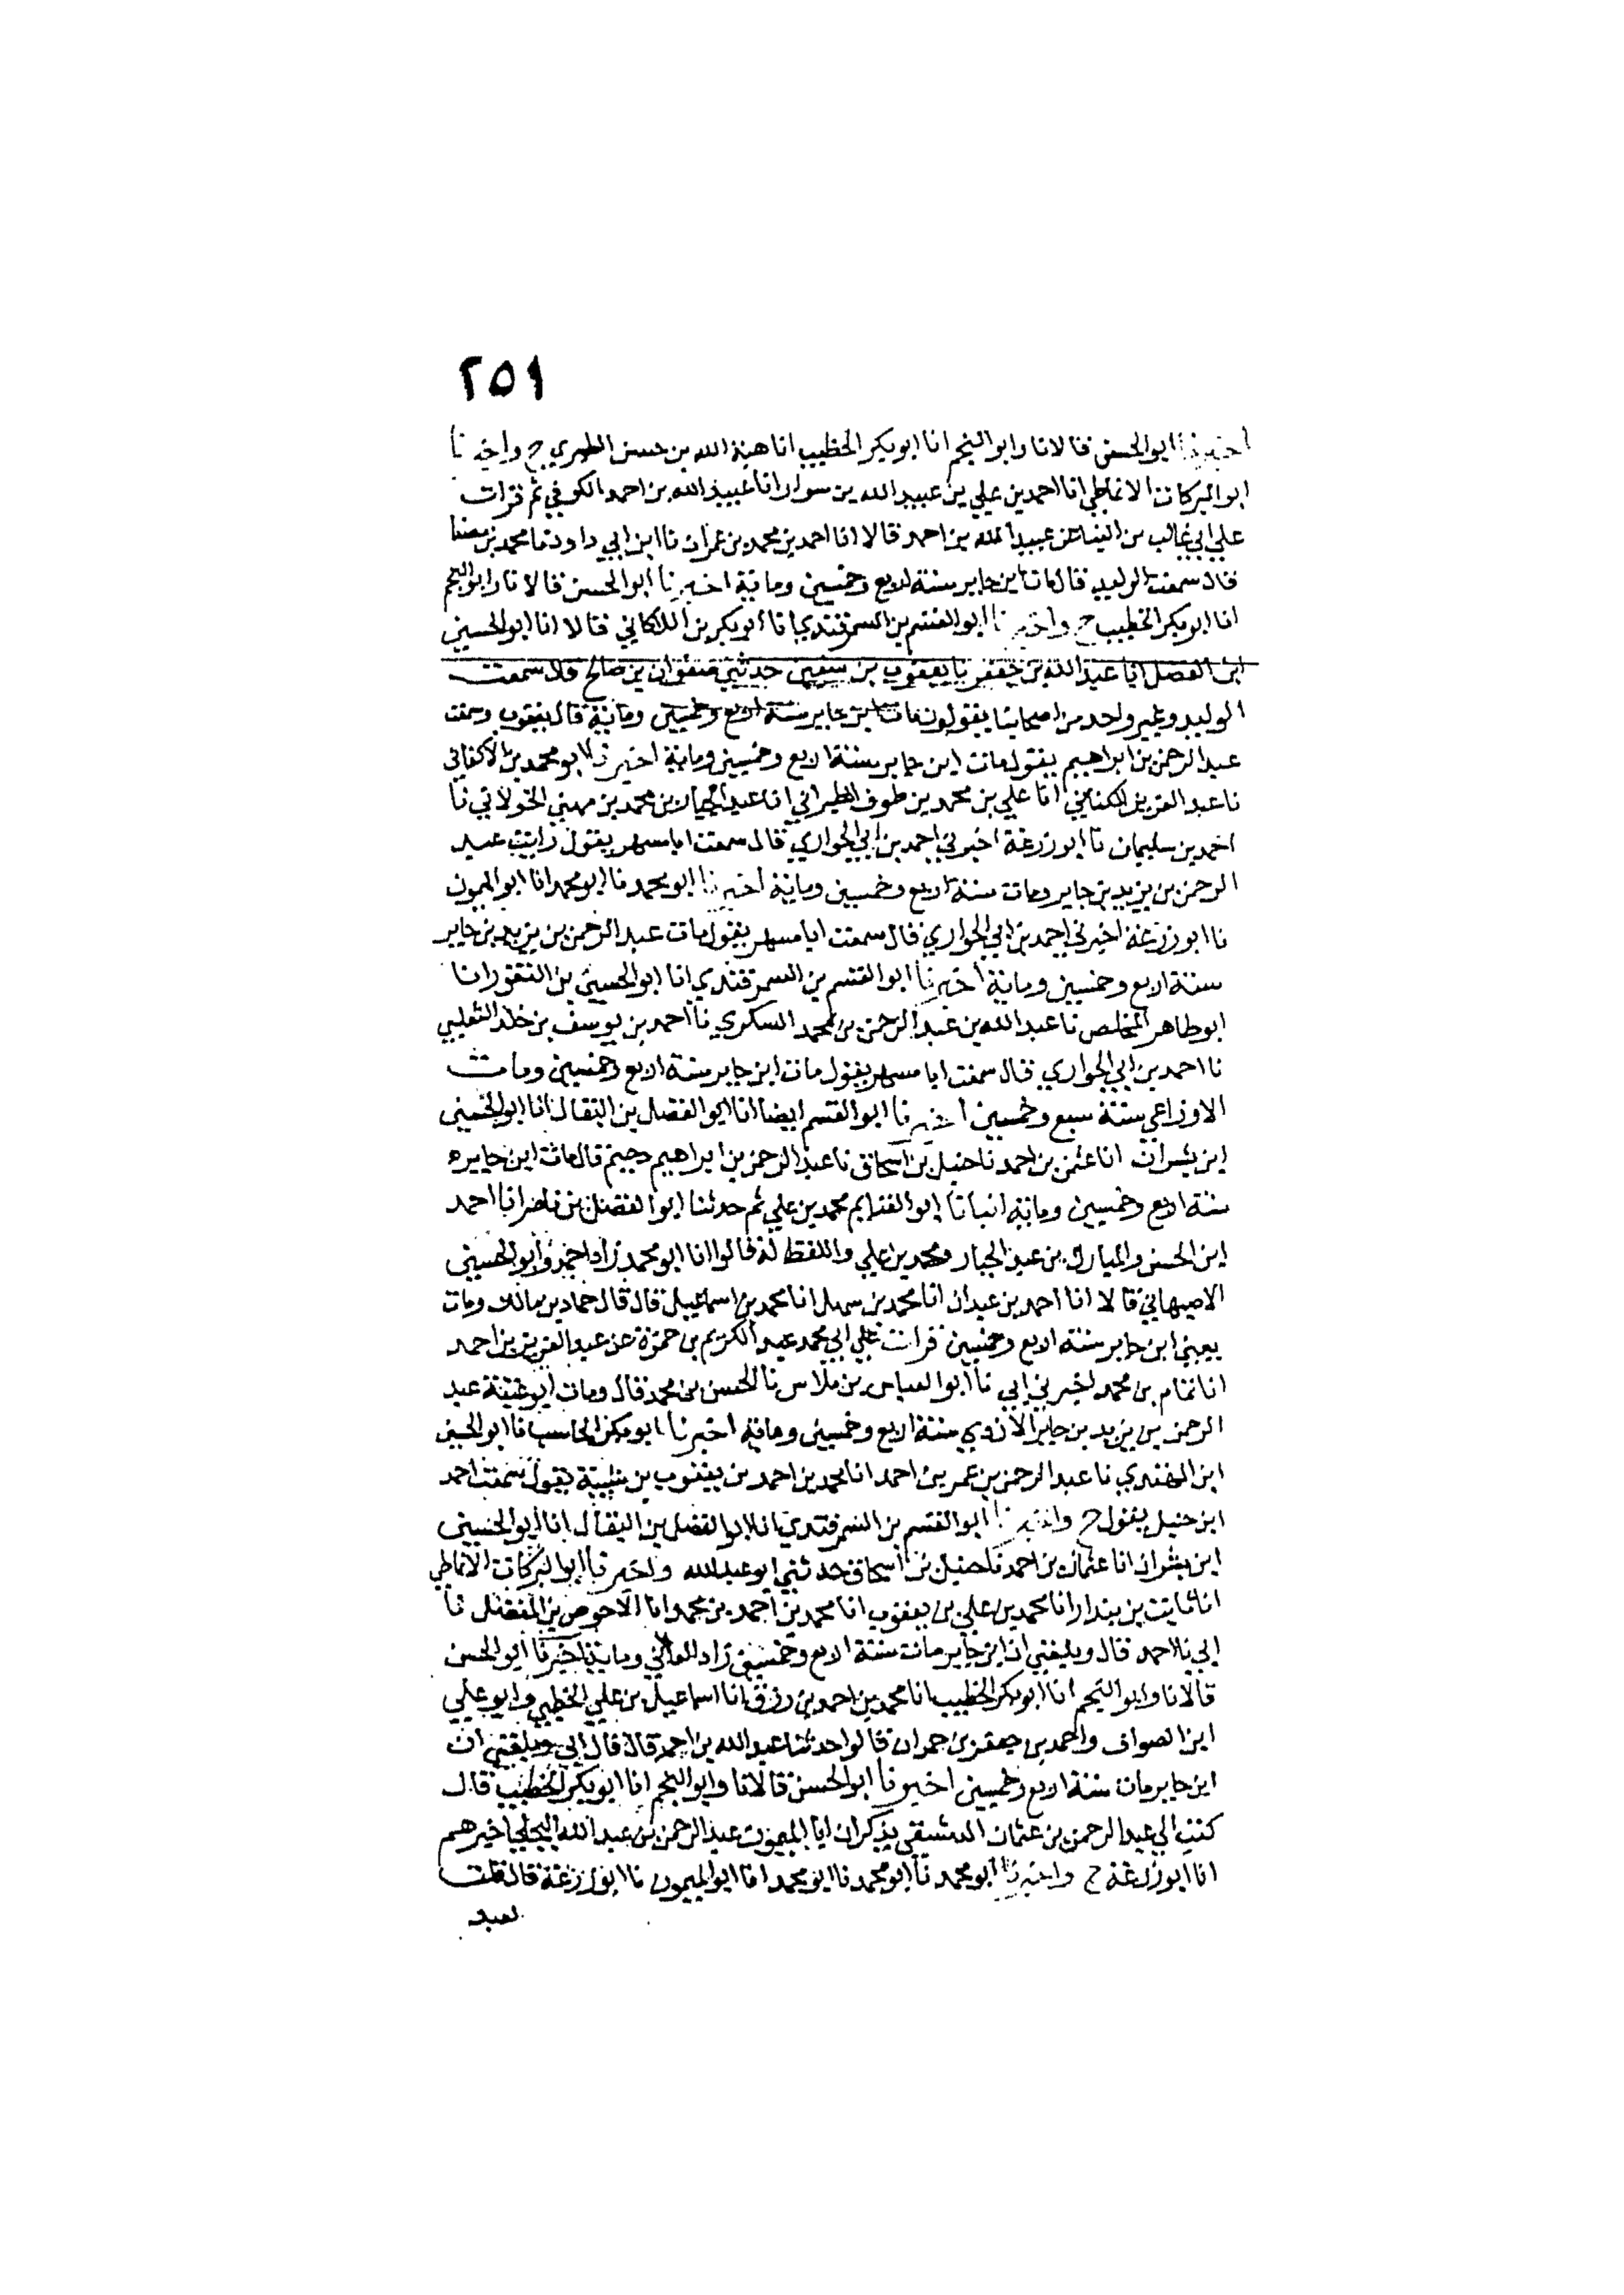 ٢٥١
اخبرنا ابو الحسن قالا نا وابو النجم انا ابو بكر الخطيب انا هبة الله بن حسن الطبري ح واخبرنا
ابو البركات الانماطي انا احمد بن علي بن عبيد الله بن سوار انا عبيد الله بن احمد الكوفي ثم قرات
علي ابي غالب بن البنا عن عبيد الله بن احمد قالا انا احمد بن محمد بن عمران نا ابن ابي داود نا محمد بن مصفا
قال سمعت الوليد قال مات ابن جابر سنة اربع وخمسين وماية اخبرنا ابو الحسن قالا نا وابو النجم
انا ابو بكر الخطيب ح واخبرنا ابو القسم بن السمرقندي انا ابو بكر بن اللالكائي قالا انا ابو الحسين
ابن الفضل انا عبد الله بن جعفر نا يعقوب بن سفين حدثني صفوان بن صالح قال سمعت
الوليد وغير واحد من اصحابنا يقولون مات ابن جابر سنة اربع وخمسين وماية قال يعقوب وسمعت
عبد الرحمن بن ابراهيم يقول مات ابن جابر سنة اربع وخمسين وماية اخبرنا ابو محمد بن الاكفاني
نا عبد العزيز الكتاني انا علي بن محمد بن طوق الطبراني انا عبد الجبار بن محمد بن مهني الخولاني نا
احمد بن سليمان نا ابو زرعة اخبرني احمد بن ابي الحواري قال سمعت ابا مسهر يقول رايت عبد
الرحمن بن يزيد بن جابر ومات سنة اربع وخمسين وماية اخبرنا ابو محمد نا ابو محمد انا ابو الميمون
نا ابو زرعة اخبرني احمد بن ابي الحواري قال سمعت ابا مسهر يقول مات عبد الرحمن بن يزيد بن جابر
سنة اربع وخمسين وماية اخبرنا ابو القسم بن السمرقندي انا ابو الحسين بن النقور انا
ابو طاهر المخلص نا عبد الله بن عبد الرحمن بن محمد السكري نا احمد بن يوسف بن خلد التغلبي
نا احمد بن ابي الحواري قال سمعت ابا مسهر يقول مات ابن جابر سنة اربع وخمسين ومات
الاوزاعي سنة سبع وخمسين اخبرنا ابو القسم ايضا انا ابو الفضل بن البقال انا ابو الحسين
ابن بشران انا عثمن بن احمد نا حنبل بن اسحاق نا عبد الرحمن بن ابراهيم دحيم قال مات ابن جابر
سنة اربع وخمسين وماية انبانا ابو الغنايم محمد بن علي ثم حدثنا ابو الفضل بن ناصر انا احمد
ابن الحسن والمبارك بن عبد الجبار ومحمد بن علي واللفظ له قالوا انا ابو محمد زاد احمد وابو الحسين
الاصبهاني قالا انا احمد بن عبدان انا محمد بن سهل انا محمد بن اسماعيل قال قال حماد بن مالك ومات
يعني ابن جابر سنة اربع وخمسين قرات علي ابي محمد عبد الكريم بن حمزة عن عبد العزيز بن احمد
انا تمام بن محمد اخبرني ابي نا ابو العباس بن ملاس نا الحسن بن محمد قال ومات ابو عتبة عبد
الرحمن بن يزيد بن جابر الازدي سنة اربع وخمسين وماية اخبرنا ابو بكر الحاسب نا ابو الحسين
ابن المهتدي نا عبد الرحمن بن عمر بن احمد انا محمد بن احمد بن يعقوب بن شيبة يقول سمعت احمد
ابن حنبل يقول ح واخبرنا ابو القسم بن السمرقندي انا ابو الفضل بن البقال انا ابو الحسين
ابن بشران انا عثمان بن احمد نا حنبل بن اسحاق حدثني ابو عبد الله واخبرنا ابو البركات الانماطي
انا ثابت بن بندار انا محمد بن علي بن يعقوب انا محمد بن احمد بن محمد انا الاحوص بن المفضل نا
ابي نا احمد قال وبلغني ان ابن جابر مات سنة اربع وخمسين زاد الغلابي وماية اخبرنا ابو الحسن
قالا نا وابو النجم انا ابو بكر الخطيب انا محمد بن احمد بن رزق انا اسماعيل بن علي الخطبي وابو علي
ابن الصواف واحمد بن جعفر بن حمدان قالوا حدثنا عبد الله بن احمد قال قال ابي وبلغني ان
ابن جابر مات سنة اربع وخمسين اخبرنا ابو الحسن قالا نا وابو النجم انا ابو بكر الخطيب قال
كتب الي عبد الرحمن بن عثمان الدمشقي يذكر ان ابا الميمون عبد الرحمن بن عبد الله البجلي اخبرهم
انا ابو زرعة ح واخبرنا ابو محمد نا ابو محمد نا ابو محمد انا ابو الميمون نا ابو زرعة قال قلت
لعبد